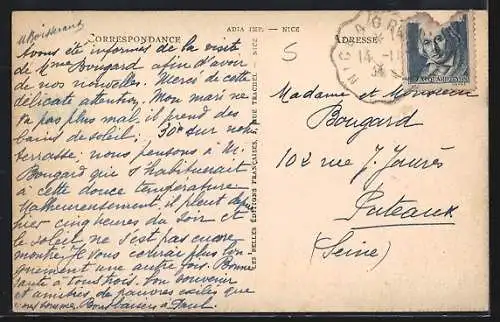 M Boisseraud
CORRESPONDANCE
ADIA IMP. - NICE
ADRESSE
Avons été informés de la visite
de Mme Bougard afin d'avoir
de nos nouvelles. Merci de cette
délicate attention. Mon mari ne
va pas plus mal, il prend des
bains de soleil; 30° sur notre
terrasse; nous pensons à M.
Bougard que s'habituerait
à cette douce température
Malheureusement, il pleut depuis
hier cinq heures du soir et
le soleil ne s'est pas encore
montré. Je vous écrirai plus lon-
guement une autre fois. Bonne
santé à tous trois. Bon souvenir
et amitiés de pauvres exilés que
nous sommes. Bons baisers à Paul.
LES BELLES EDITIONS FRANÇAISES, RUE TRACHEL, NICE
5
NICE A GRA
14
34
JACQUARD
Madame et Monsieur
Bougard
102 rue J. Jaurès
Puteaux
(Seine)